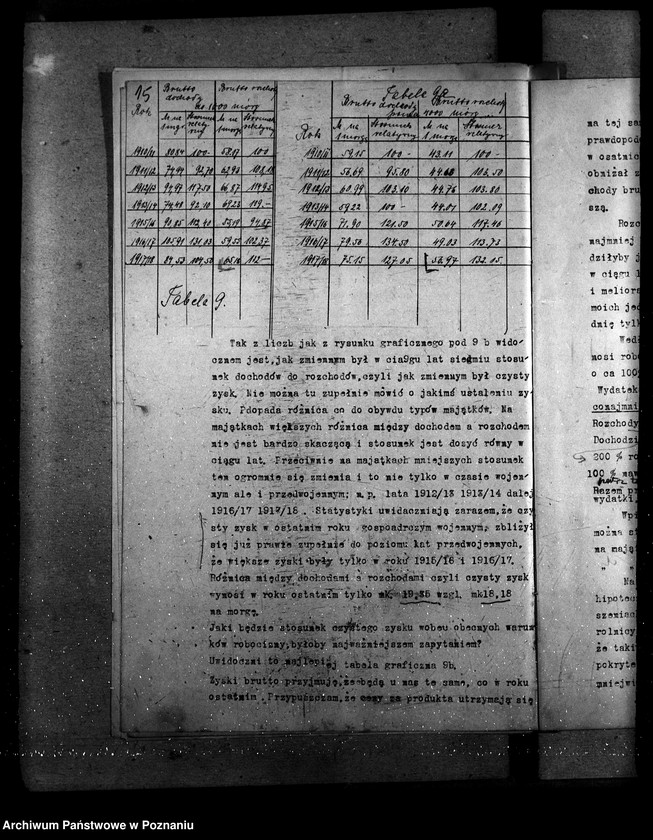 15
Brutto dochody Brutto rozchody
do 1000 mórg
Rok M. na morgę Stosunek relatywny M. na morgę Stosunek relatywny
1910/11 80.84 100- 58.17 100
1911/12 74.94 92.70 62.98 108.18
1912/13 94.97 117.50 66.87 114.95
1913/14 74.48 92.10 69.23 119.-
1915/16 90.85 112.40 55.19 94.87
1916/17 105.91 131.03 59.53 102.37
1917/18 84.53 104.50 65.18 112-
Tabela 9a
Brutto dochody Brutto rozchody
ponad 1000 mórg
Rok M. na 1 morgę Stosunek relatywny M. na 1 morgę Stosunek relatywny
1910/11 59.15 100- 43.11 100-
1911/12 56.69 95.80 44.68 103.50
1912/13 60.99 103.10 44.76 103.80
1913/14 59.22 100- 44.01 102.09
1915/16 71.90 121.50 50.64 117.46
1916/17 79.56 134.50 49.03 113.73
1917/18 75.15 127.05 56.97 132.05
Tabela 9.
Tak z liczb jak z rysunku graficznego pod 9 b wido-
cznem jest, jak zmiennym był w cia9gu lat siedmiu stosu-
nek dochodów do rozchodów, czyli jak zmiennym był czysty
zysk. Nie można tu zupełnie mówić o jakimś ustaleniu zy-
sku. Pdopada różnica co do obywdu typów majątków. Na
majątkach większych różnica między dochodem a rozchodem
nie jest bardzo skaczącą i stosunek jest dosyć równy w
ciągu lat. Przeciwnie na majatkach mniejszych stosunek
ten ogromnie się zmienia i to nie tylko w czasie wojen-
nym ale i przedwojennym; n.p. lata 1912/13 1913/14 dalej
1916/17 1917/18 . Statystyki uwidaczniają zarazem, że czy
sty zysk w ostatnim roku gospoadrczym wojennym, zbliżył
się już prawie zupełnie do poziomu lat przedwojennych,
że większe zyski były tylko w roku 1915/16 i 1916/17.
Różnica między dochodami a rozchodami czyli czysty zysk
wynosi w roku ostatnim tylko mk. 19,35 wzgl. mk 18,18
na morgę.
Jaki będzie stosunek czystego zysku wobec obecnych warun
ków robocizny, byłoby najważniejszem zapytaniem?
Uwidoczni to najlepiej tabela graficzna 9b.
Zyski brutto przyjmuję, że będą u nas te same, co w roku
ostatnim . Przypuszczam, że ceny za produkta utrzymają się
na tej sam
prawdopodo
w ostatnic
obniżał z
chody bru
szą.
Rozc
najmniej
dziłyby j
w ciągu l
i meliora
moich jed
dnię tylk
Wedł
nosi robo
o ca 100
Wydatek
conajmni
Rozchody
Dochodzi
200 % ro
100 % naw
Razem pr
wydatki,
Wpł
można si
na mają
" "
Na
hipotec
szeniac
rolnicy
że taki
pokryte
mniejwi
Archiwum Państwowe w Poznaniu